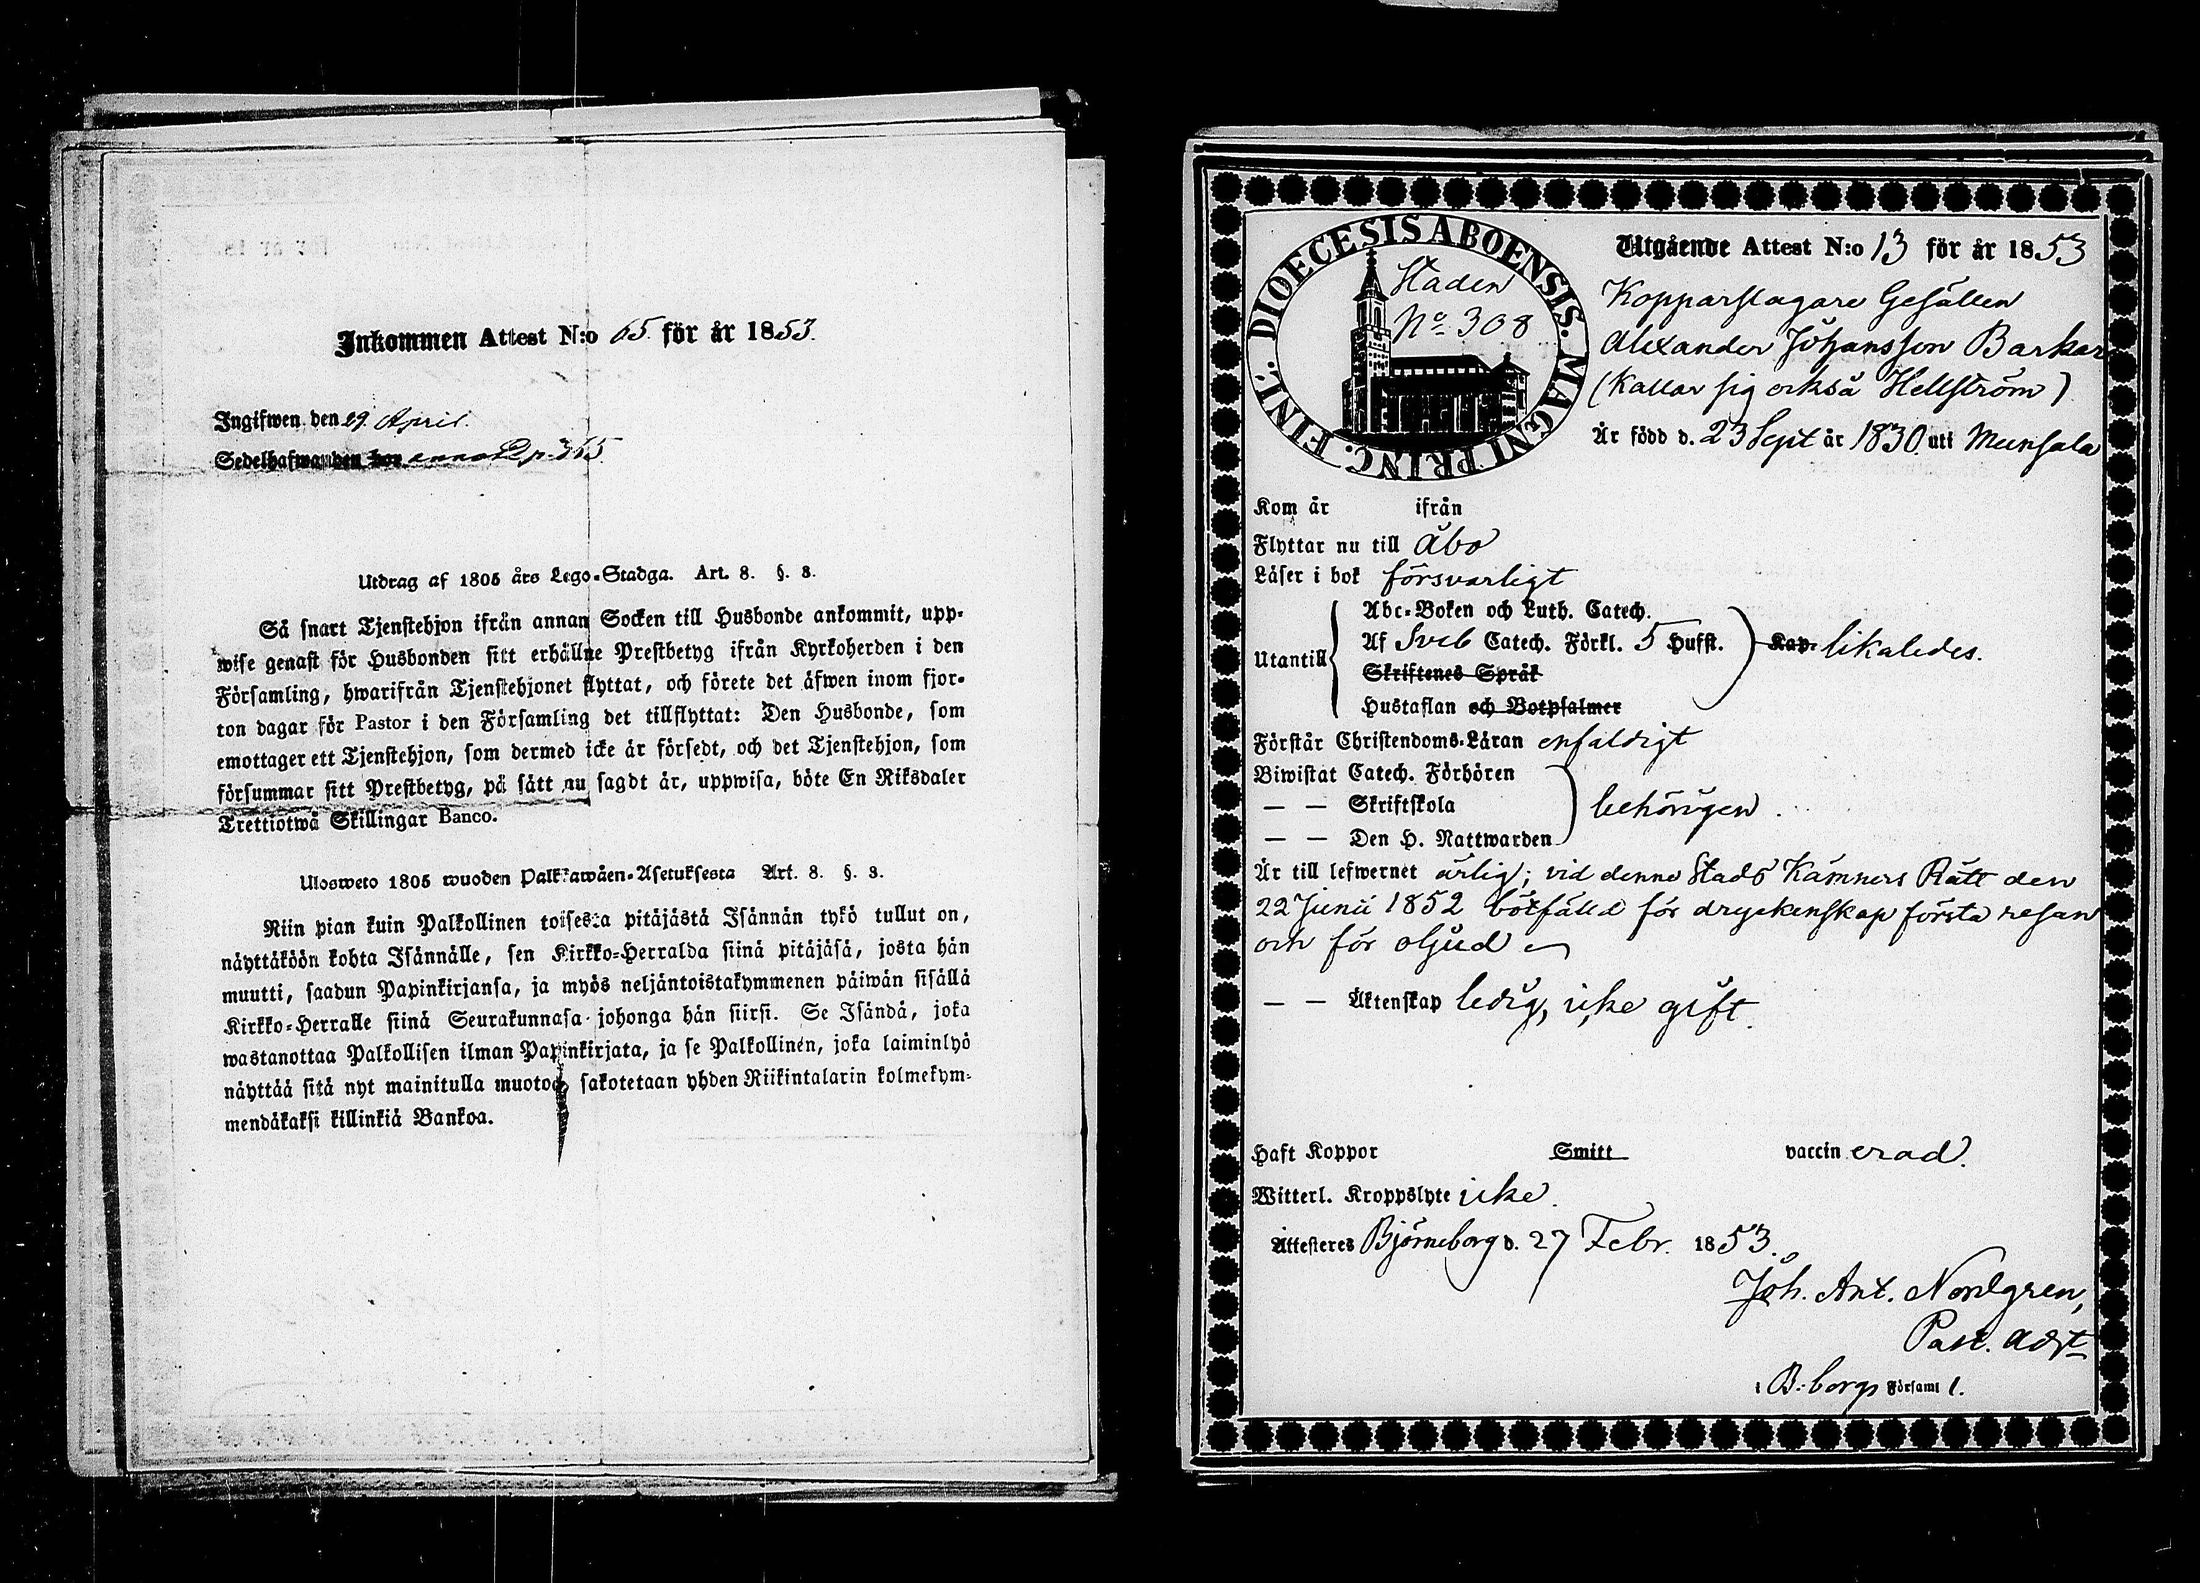 Inkommen Attest N:o 65 för år 1853.
Ingifwen den 29 April.
Sedelhafwanden bor anno p. 365.
Utdrag af 1805 års Lego-Stadga. Art. 8. §. 3.
Så snart Tjenstehjon ifrån annan Socken till Husbonde ankommit, upp-
wise genast för Husbonden sitt erhållne Prestbetyg ifrån Kyrkoherden i den
Församling, hwarifrån Tjenstehjonet flyttat, och förete det äfwen inom fjor-
ton dagar för Pastor i den Församling det tillflyttat: Den Husbonde, som
emottager ett Tjenstehjon, som dermed icke är försedt, och det Tjenstehjon, som
försummar sitt Prestbetyg, på sätt nu sagdt är, uppwisa, böte En Riksdaler
Trettiotwå Skillingar Banco.
Ulosweto 1805 wuoden Palkkawäen-Asetuksesta Art. 8. §. 3.
Niin pian kuin Palkollinen toisesta pitäjästä Isännän tykö tullut on,
näyttäköön kohta Isännälle, sen Kirkko-Herralda siinä pitäjäsä, josta hän
muutti, saadun Papinkirjansa, ja myös neljäntoistakymmenen päiwän sisällä
Kirkko-Herralle siinä Seurakunnasa johonga hän siirsi. Se Isändä, joka
wastanottaa Palkollisen ilman Papinkirjata, ja se Palkollinen, joka laiminlyö
näyttää sitä nyt mainitulla muotoa, sakotetaan yhden Riikintalarin kolmekym-
mendäkaksi killinkiä Bankoa.
DIOECESIS ABOENSIS. MAGNI PRINC. FINL.
Staden
No 308
Utgående Attest N:o 13 för år 1853
Kopparslagare Gesällen
Alexander Johansson Barkar
(kallar sig också Hellström)
Är född d. 23 Sept år 1830 uti Munsala
Kom år ifrån
Flyttar nu till Åbo
Läser i bok försvarligt
Utantill
Abc-Boken och Luth. Catech.
Af Sveb Catech. Förkl. 5 Hufst. Kap. likaledes.
Skriftenes Språk
Hustaflan och Botpsalmer
Förstår Christendoms-Läran enfaldigt
Biwistat Catech. Förhören
— — Skriftskola behörigen.
— — Den H. Nattwarden
Är till lefwernet ärlig; vid denne Stads Kämners Rätt den
22 Junii 1852 bötfälld för dryckenskap första resan
och för oljud
— — Äktenskap ledig, icke gift.
Haft Koppor Smitt vaccin erad.
Witterl. Kroppslyte icke.
Attesteres Björneborg d. 27 Febr. 1853.
Joh. Ant. Nordgren,
Past. adjt
i B:borgs Församl.